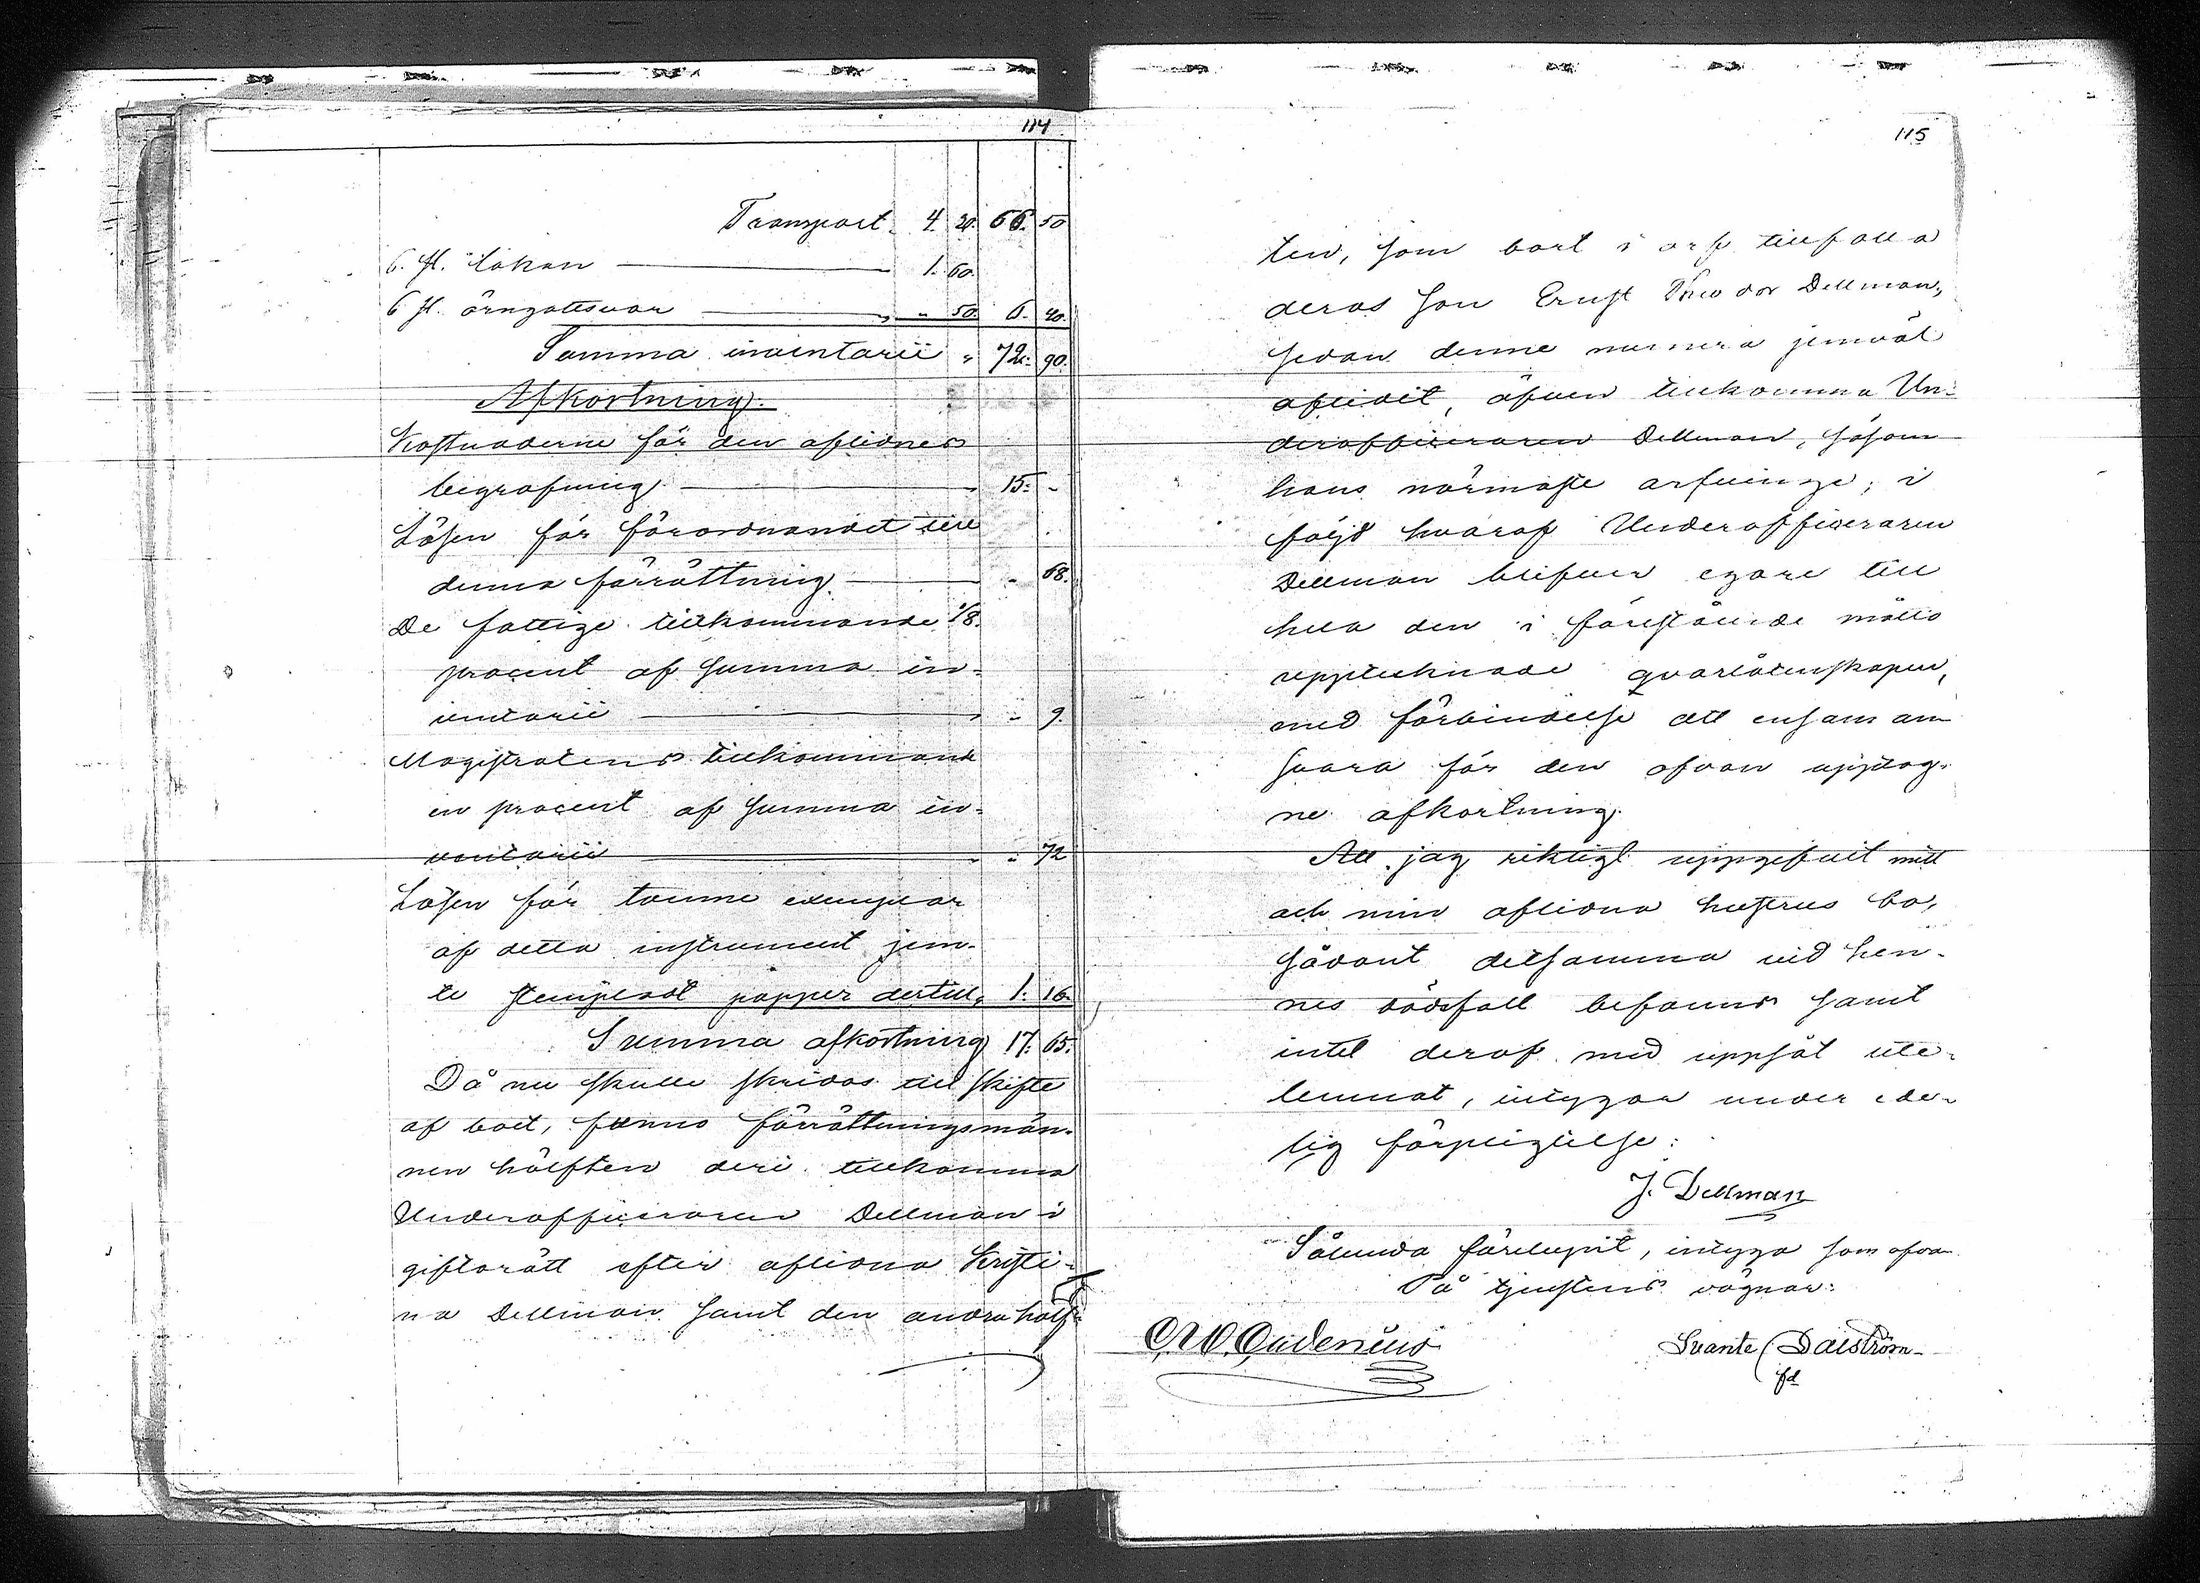 114
Transport. 4. 20. 66. 50
6. st. lakan 1. 60.
6 st. örngottsvar " 50 6. 40.
Summa inventarii " 72. 90.
Afkortning.
Kostnaderne för den aflidnes
begrafning 15. -
Lösen för förordnandet till
denna förrättning " 68.
De fattige tillkommande 1/8.
procent af summa in-
ventarii " 9.
Magistratens tillkommande
en procent af summa in-
ventarii " 72
Lösen för tvenne exemplar
af detta instrument jem-
te stempladt papper dertill, 1. 16.
Summa afkortning 17. 65.
Då nu skulle skridas till skifte
af boet, funno förrättningsmän-
nen hälften deri tillkomma
Underofficeraren Dellman i
giftorätt efter aflidna Kristi-
na Dellman samt den andra hälf-
115
ten, som bort i arf tillfalla
deras son Ernst Theodor Dellman,
sedan denne numera jemväl
aflidit, äfven tillkomma Un-
derofficeraren Dellman, såsom
hans närmaste arfvinge; i
följd hvaraf Underofficeraren
Dellman blifver egare till
hela den i förestående måtto
upptecknade qvarlåtenskapen,
med förbindelse att ensam an-
svara för den ofvan upptag-
ne afkortning.
Att jag riktigt uppgifvit mitt
och min aflidna hustrus bo,
sådant detsamma vid hen-
nes dödsfall befanns samt
intet deraf med uppsåt ute-
lemnat, intygar under ede-
lig förpligtelse:
J. Dellman
Sålunda förelupit, intyga som ofvan
På tjenstens vägnar:
Svante Dalström
fd